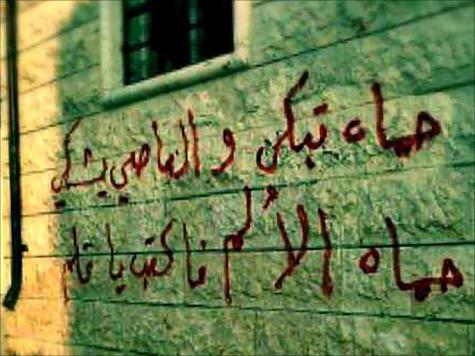 حماه تبكي و العاصي يشتكي
حماه الألم فاكتب يا قلم